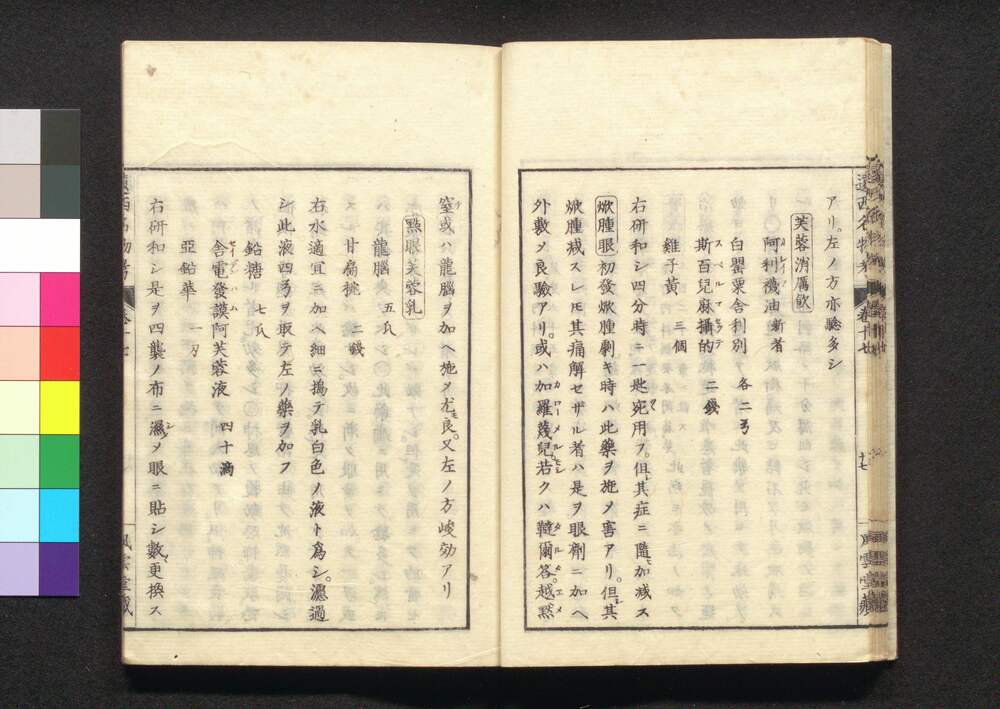 アリ。左ノ方亦驗多シ
芙蓉消厲飮
阿利襪油 新者
白罌粟舎利別 各二弓
斯百兒麻攝的 二錢
雞子黄 三個
右研和シ四分時ニ一匙宛用フ。但其症ニ隨加减ス
焮腫眼 初發焮腫劇キ時ハ此藥ヲ施メ害アリ。但其
焮腫减スレ𪜈其痛解セザル者ハ是ヲ眼劑ニ加ヘ
外敷ソ良驗アリ。或ハ加羅蔑兒若クハ韃爾答越默
十七
風雲堂藏
窒或ハ龍腦ヲ加ヘ施メ尤良。又左ノ方峻効アリ
點眼芙蓉乳
龍腦 五瓜
甘扁桃 二錢
右水適宜ニ加ヘ細ニ搗テ乳白色ノ液ト爲シ。濾過
シ此液四弓ヲ取テ左ノ藥ヲ加フ
鉛糖 七瓜
舎電發謨阿芙蓉液 四十滴
亞鉛華 一刃
右研和シ是ヲ四襲ノ布ニ濕メ眼ニ貼シ數更換ス